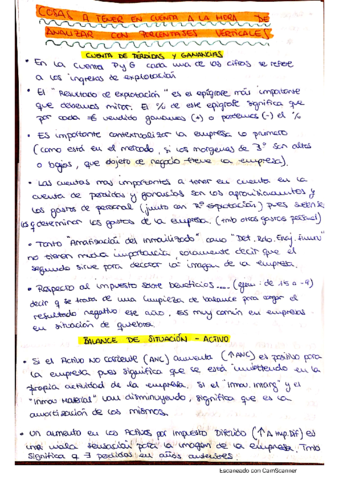 COSAS A TENER EN CUENTA A LA HORA DE
ANALIZAR CON PORCENTAJES VERTICALES:
CUENTA DE PÉRDIDAS Y GANANCIAS
• En la cuenta PyG cada una de las cifras se refiere
a los ingresos de explotación
• El "Resultado de explotación" es el epígrafe más importante
que debemos mirar. El % de este epígrafe significa que
por cada 1€ vendido ganamos (+) o perdemos (-) el %
• Es importante contextualizar la empresa lo primero
(como está en el mercado, si los márgenes de son altos
o bajos, que objeto de negocio tiene la empresa).
• Las cuentas más importantes a tener en cuenta en la
cuenta de pérdidas y ganancias son los aprovisionamientos y
los gastos de personal (junto con explotación) pues suelen
los q determinan los gastos de la empresa. (tmb otros gastos)
• Tanto "Amortización del inmovilizado" como "Det. Rdo. Enaj. Inmov"
no tienen mucha importancia, solamente decir que el
segundo sirve para decorar la imagen de la empresa.
• Respecto al impuesto sobre beneficios.... de 15 a -9)
decir q se trata de una limpieza de balance para cargar el
resultado negativo ese año, es muy común en empresas
en situación de quiebra.
BALANCE DE SITUACIÓN - ACTIVO
• Si el Activo NO CORRIENTE (ANC) aumenta (↑ANC) es positivo para
la empresa pues significa que se está invirtiendo en la
propia actividad de la empresa. Si el "Inmov. Intang" y el
"Inmov Material" van disminuyendo, significa que es la
amortización de los mismos.
• Un aumento en los Activos por Impuesto Diferido (↑A Imp. Dif) es
una mala sensación para la imagen de la empresa. Tmb
significa q pérdidas en años anteriores.
Escaneado con CamScanner